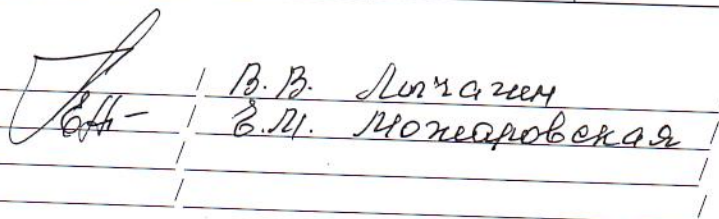 / В.В. Лычагин /
/ Е.М. Можаровская /
/ /
/ /